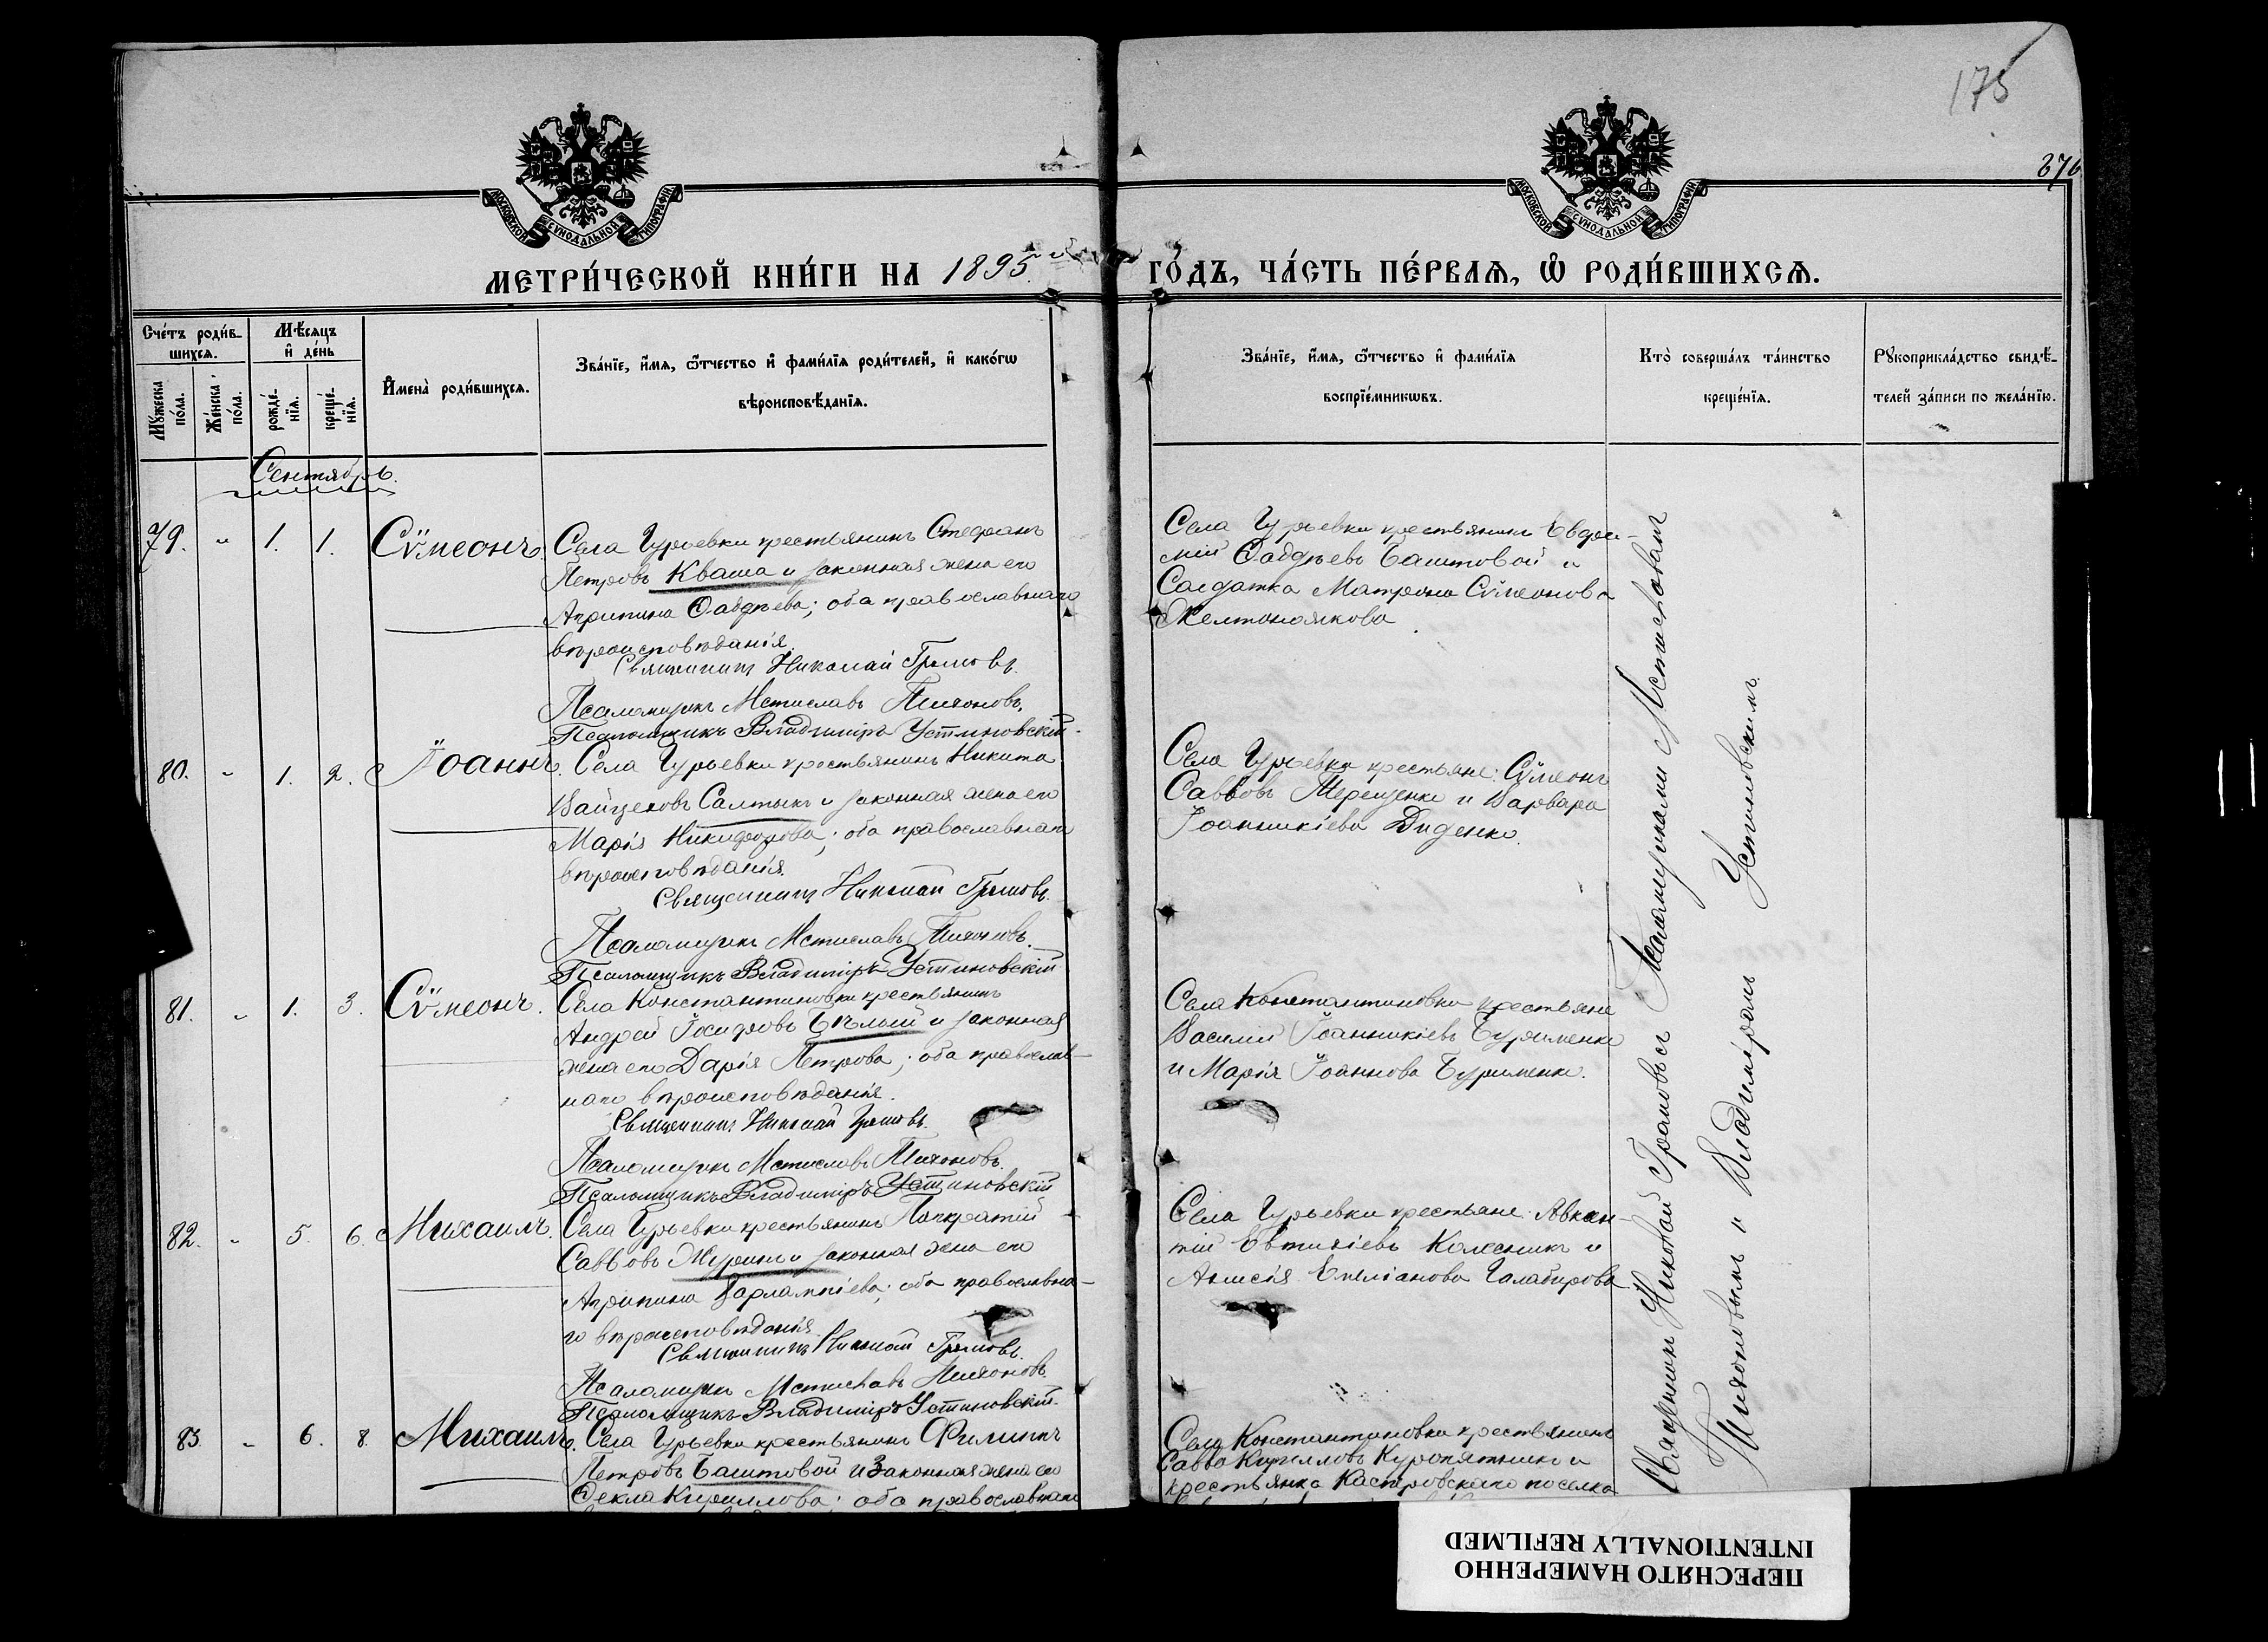 175
676
МОСКОВСКОЙ СѴНОДАЛЬНОЙ ТИПОГРАФІИ
МОСКОВСКОЙ СѴНОДАЛЬНОЙ ТИПОГРАФІИ
МЕТРИ́ЧЕСКОЙ КНИ́ГИ НА 1895
ГО́ДЪ, ЧА́СТЬ ПЕ́РВАѦ, Ѡ РОДИ́ВШИХСѦ.
Сче́тъ роди́в-
шихсѧ.
Мѣ́сѧцъ
и҆ де́нь
Мꙋ́жеска
по́ла.
Же́нска
по́ла.
рожде́-
нїѧ.
креще́-
нїѧ.
И҆мена̀ роди́вшихсѧ.
Зва́нїе, и҆́мѧ, ѻ҆́тчество и҆ фами́лїѧ роди́телей, и҆ како́гѡ
вѣроисповѣ́данїѧ.
Зва́нїе, и҆́мѧ, ѻ҆́тчество и҆ фами́лїѧ
воспрїе́мникѡвъ.
Кто̀ соверша́лъ та́инство
креще́нїѧ.
Рꙋкоприкла́дство свидѣ́-
телей за́писи по жела́нїю.
Сентябрь.
79. " 1. 1. Сѵмеонъ. Села Гурьевки крестьянинъ Стефанъ
Петровъ Кваша и законная жена его
Агрипина Фаддѣева; оба православнаго
вѣроисповѣданія.
Священникъ Николай Громовъ.
Псаломщикъ Мстиславъ Тихоновъ.
Псаломщикъ Владиміръ Устиновскій.
Села Гурьевки крестьянинъ Евфи-
мій Фаддѣевъ Баштовой и
Солдатка Матрона Сѵмеонова
Желтоножкова
80. " 1. 2. Іоаннъ. Села Гурьевки крестьянинъ Никита
Салтыкъ и законная жена его
Марія Никифорова; оба православнаго
вѣроисповѣданія.
Священникъ Николай Громовъ.
Псаломщикъ Мстиславъ Тихоновъ.
Псаломщикъ Владиміръ Устиновскій
Села Гурьевки крестьяне: Сѵмеонъ
Саввовъ Терещенко и Варвара
Іоанникіева Диденко.
81. " 1. 3. Сѵмеонъ. Села Константиновки крестьянинъ
Андрей Іосифовъ Бѣлый и законная
жена его Дарія Петрова; оба православ-
наго вѣроисповѣданія.
Священникъ Николай Громовъ.
Псаломщикъ Мстиславъ Тихоновъ.
Псаломщикъ Владиміръ Устиновскій
Села Константиновки крестьяне
Василій Іоанникіевъ Бурименко
и Марія Іоаннова Бурименко.
82. " 5. 6. Михаилъ. Села Гурьевки крестьянинъ Панкратій
Саввовъ Журинъ и законная жена его
Агрипина Харлампіева; оба православна-
го вѣроисповѣданія.
Священникъ Николай Громовъ.
Псаломщикъ Мстиславъ Тихоновъ.
Псаломщикъ Владиміръ Устиновскій.
Села Гурьевки крестьяне: Авксен-
тій Евтихіевъ Колесникъ и
Анисія Емеліанова Галабирова
83. " 6. 8. Михаилъ. Села Гурьевки крестьянинъ Филиппъ
Петровъ Баштовой и законная жена его
Ѳекла Кириллова; оба православнаго
Села Константиновки крестьянинъ
Савва Кирилловъ Куропятникъ и
крестьянка Касперовскаго поселка
Священникъ Николай Громовъ съ Псаломщиками Мстиславомъ
Тихоновымъ и Владиміромъ Устиновскимъ.
ПЕРЕСНЯТО НАМЕРЕННО
INTENTIONALLY REFILMED